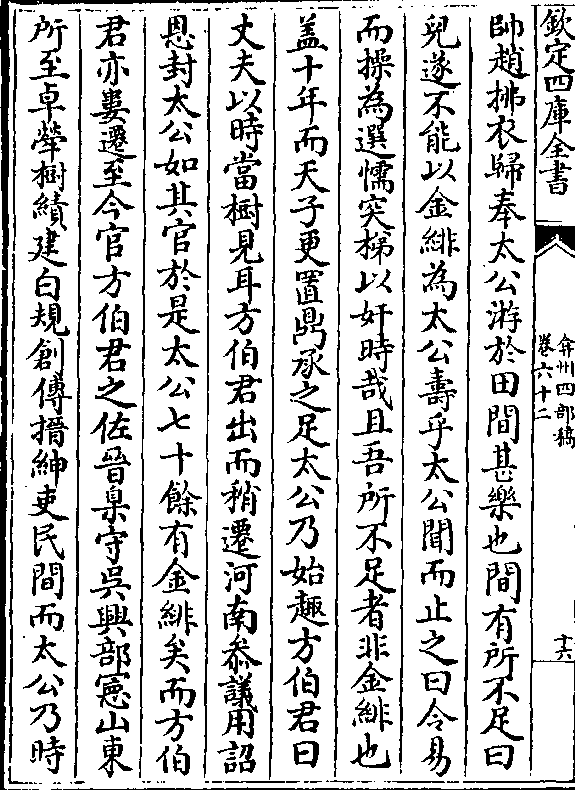 欽定四庫全書
弇州四部稿
卷六十二
十六
帥趙拂衣歸奉太公游於田間甚樂也間有所不足曰
兒遂不能以金緋為太公壽乎太公聞而止之曰令易
而操為選懦突梯以奸時哉且吾所不足者非金緋也
盖十年而天子更置鼎承之足太公乃始趣方伯君曰
丈夫以時當樹見耳方伯君出而稍遷河南叅議用詔
恩封太公如其官於是太公七十餘有金緋矣而方伯
君亦婁遷至今官方伯君之佐晉臬守吳興部憲山東
所至卓犖樹績建白規創傳搢紳吏民間而太公乃時